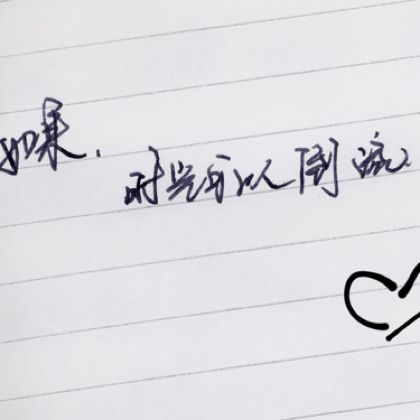 如果.
时光可以倒流